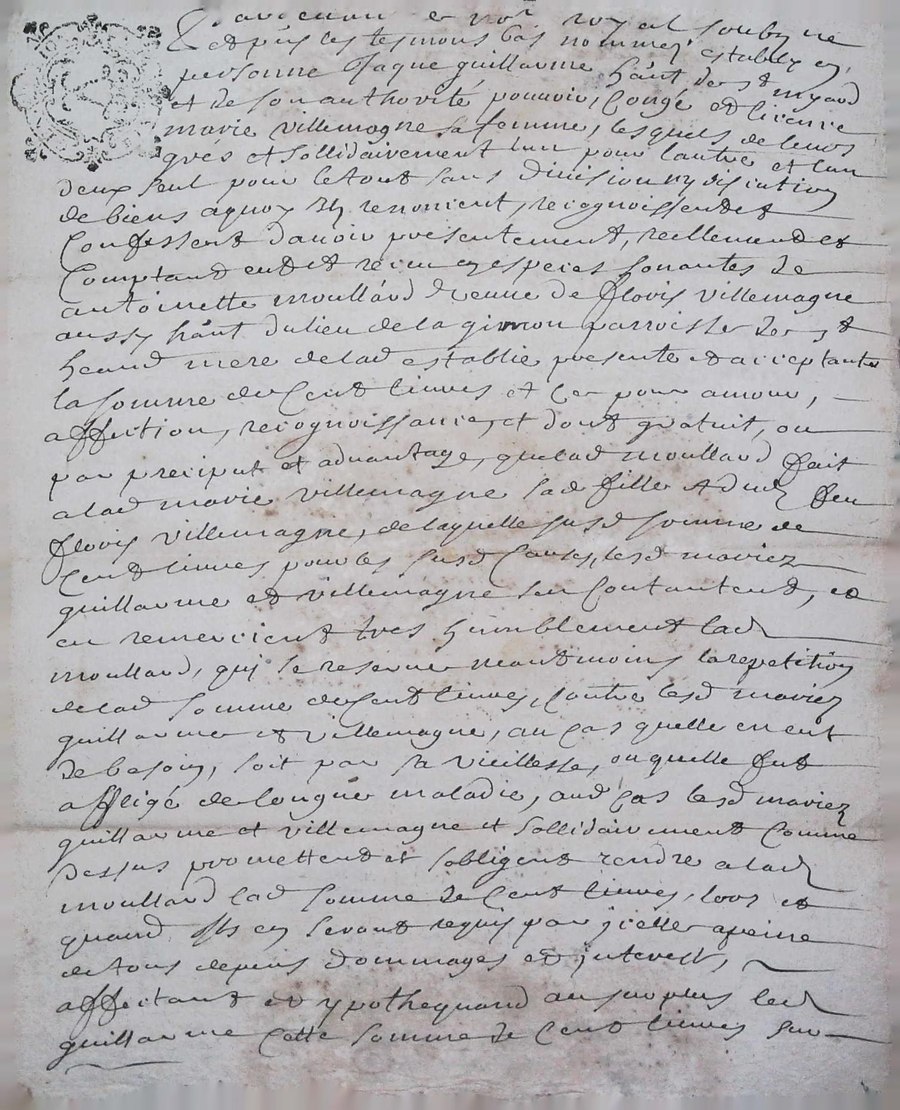 Pardevant le not royal soubzne
et puis les tesmons bas nommez establyz en
personne Jaque guillaume habt de
et de son authorité pouvoir, Congé et licence
marie villemagne sa femme, lesquels de leurs
grés et sollidairement lun pour lautre et lun
deux seul pour le tout sans division ny discution
de biens aquoy Ilz renoncent, recognoissent et
Confessent davoir presentement, reellement et
Comptant eut et receu en especes sonantes de
antoinette moullard veuve de flovis villemagne
aussy habt du lieu de la parroisse de st
heand mere de lad establie presente et acceptante
la somme de Cent livres et Ce pour amour,
affection, recognoissance, et dont gratuit, ou
par preciput et advantage, que lad moullard fait
a lad marie villemagne sad fille Adud feu
flovis villemagne, de laquelle susd somme de
Cent livres pour les susd Causes, lesd mariez
guillaume et villemagne sen Contantent, et
en remercient tres humblement lad
moullard, qui se reserve neantmoins la repetition
de lad somme de Cent livres, Contre lesd mariez
guillaume et villemagne, au cas quelle en eut
de besoin, soit par sa vieillesse, ou quelle fut
affligé de longue maladie, aud Cas lesd mariez
guillaume et villemagne et sollidairement Comme
dessus promettent et sobligent rendre a lad
moullard lad somme de Cent livres, lors et
quand Ilz en seront requis par jcelle a peine
de tous depens dommages et jnterests,
affectant et ypothequand au surplus led
guillaume Cette somme de Cent livres sur